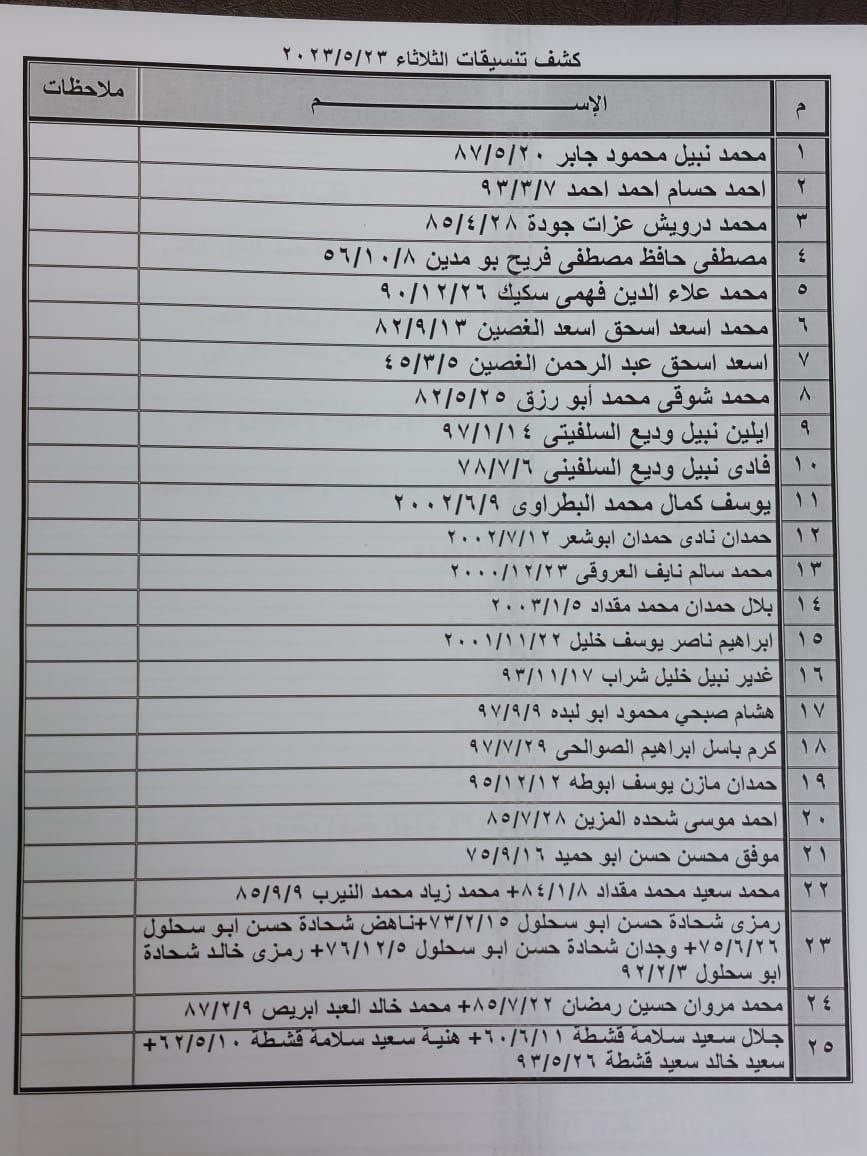 كشف تنسيقات الثلاثاء ٢٠٢٣/٥/٢٣
م الإســـــــــم ملاحظات
١ محمد نبيل محمود جابر ٨٧/٥/٢٠
٢ احمد حسام احمد احمد ٩٣/٣/٧
٣ محمد درويش عزات جودة ٨٥/٤/٢٨
٤ مصطفى حافظ مصطفى فريح بو مدين ٥٦/١٠/٨
٥ محمد علاء الدين فهمى سكيك ٩٠/١٢/٢٦
٦ محمد اسعد اسحق اسعد الغصين ٨٢/٩/١٣
٧ اسعد اسحق عبد الرحمن الغصين ٤٥/٣/٥
٨ محمد شوقى محمد أبو رزق ٨٢/٥/٢٥
٩ ايلين نبيل وديع السلفيتى ٩٧/١/١٤
١٠ فادى نبيل وديع السلفينى ٧٨/٧/٦
١١ يوسف كمال محمد البطراوى ٢٠٠٢/٦/٩
١٢ حمدان نادى حمدان ابوشعر ٢٠٠٢/٧/١٢
١٣ محمد سالم نايف العروقى ٢٠٠٠/١٢/٢٣
١٤ بلال حمدان محمد مقداد ٢٠٠٣/١/٥
١٥ ابراهيم ناصر يوسف خليل ٢٠٠١/١١/٢٢
١٦ غدير نبيل خليل شراب ٩٣/١١/١٧
١٧ هشام صبحي محمود ابو لبده ٩٧/٩/٩
١٨ كرم باسل ابراهيم الصوالحى ٩٧/٧/٢٩
١٩ حمدان مازن يوسف ابوطه ٩٥/١٢/١٢
٢٠ احمد موسى شحده المزين ٨٥/٧/٢٨
٢١ موفق محسن حسن ابو حميد ٧٥/٩/١٦
٢٢ محمد سعيد محمد مقداد ٨٤/١/٨+ محمد زياد محمد النيرب ٨٥/٩/٩
رمزى شحادة حسن ابو سحلول ٧٣/٢/١٥+ناهض شحادة حسن ابو سحلول
٢٣ ٧٥/٦/٢٦+ وجدان شحادة حسن ابو سحلول ٧٦/١٢/٥+ رمزى خالد شحادة
ابو سحلول ٩٢/٢/٣
٢٤ محمد مروان حسين رمضان ٨٥/٧/٢٢+ محمد خالد العبد ابريص ٨٧/٢/٩
٢٥ جلال سعيد سلامة قشطة ٦٠/٦/١١+ هنية سعيد سلامة قشطة ٦٢/٥/١٠+
سعيد خالد سعيد قشطة ٩٣/٥/٢٦